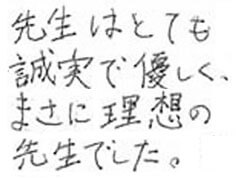 先生はとても
誠実で優しく、
まさに理想の
先生でした。